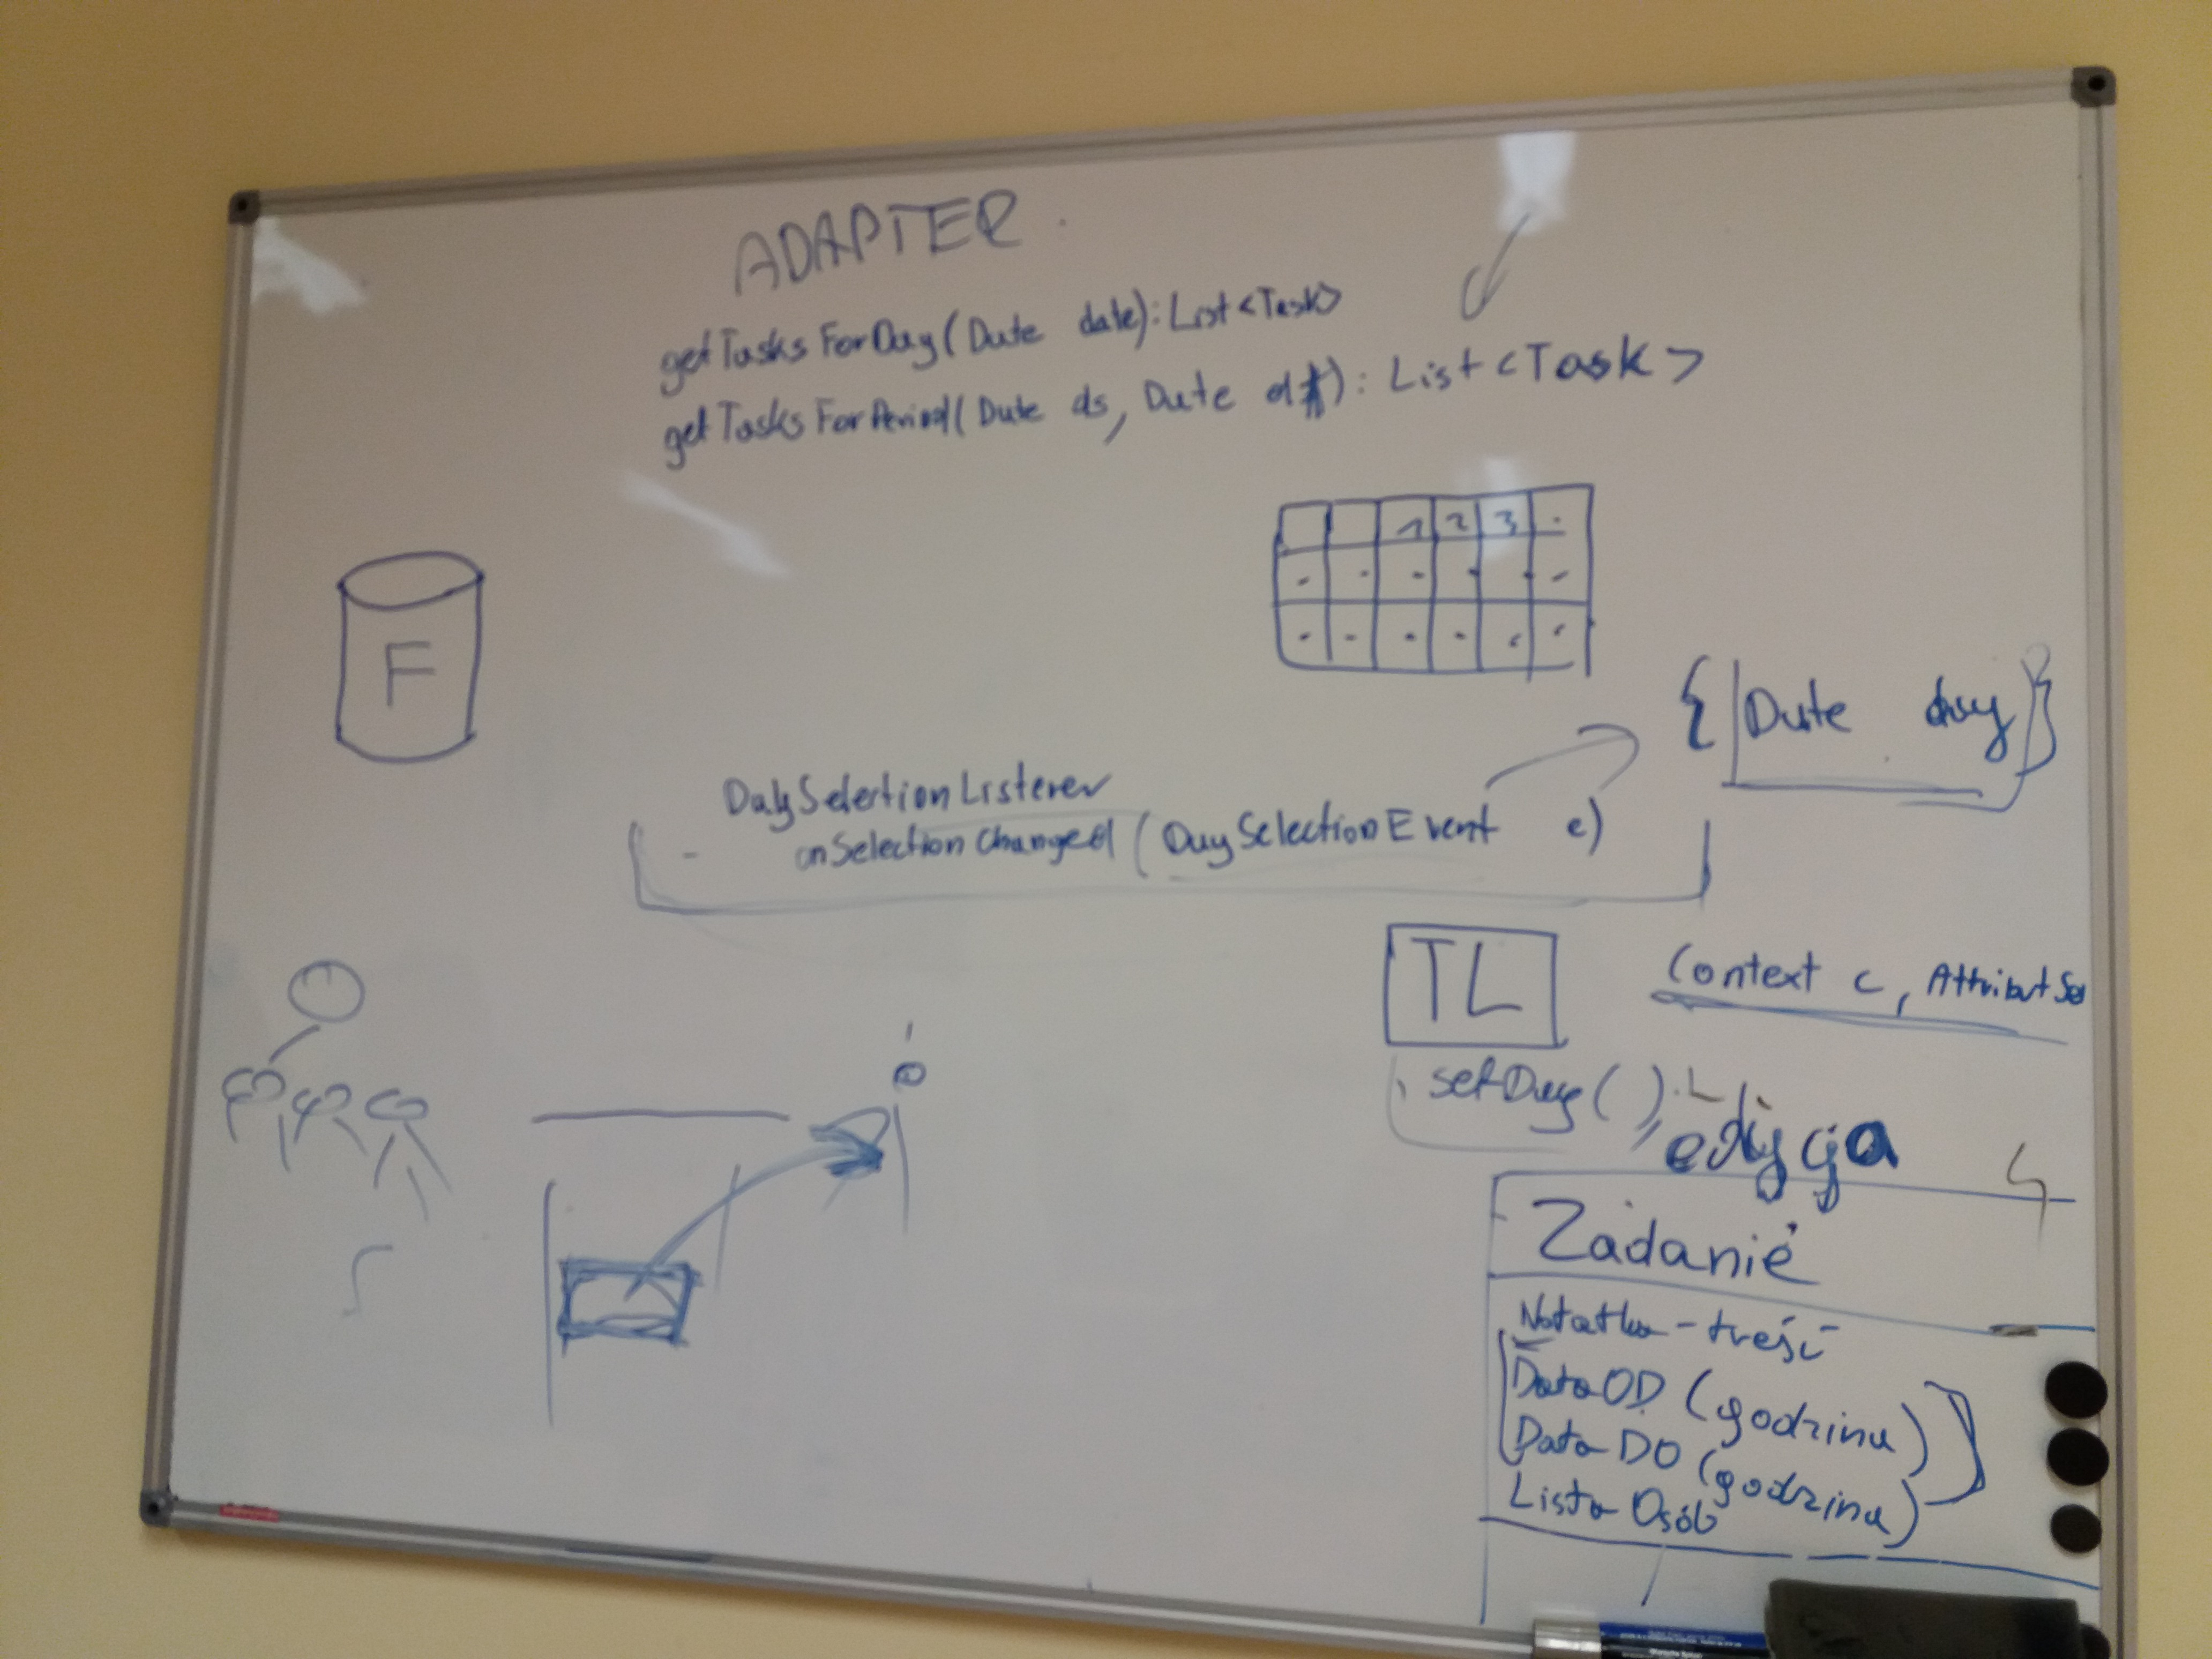 ADAPTER
getTasksForDay(Date date): List<Task>
getTasksForPeriod(Date ds, Date d): List<Task>
1 2 3
F
{ Date day }
DaySelectionListener
- onSelectionChanged (DaySelectionEvent e)
TL
Context c, AttributSet
setDay()
edycja
Zadanie
Notatka - treść
Data OD (godzina)
Data DO (godzina)
Lista Osób